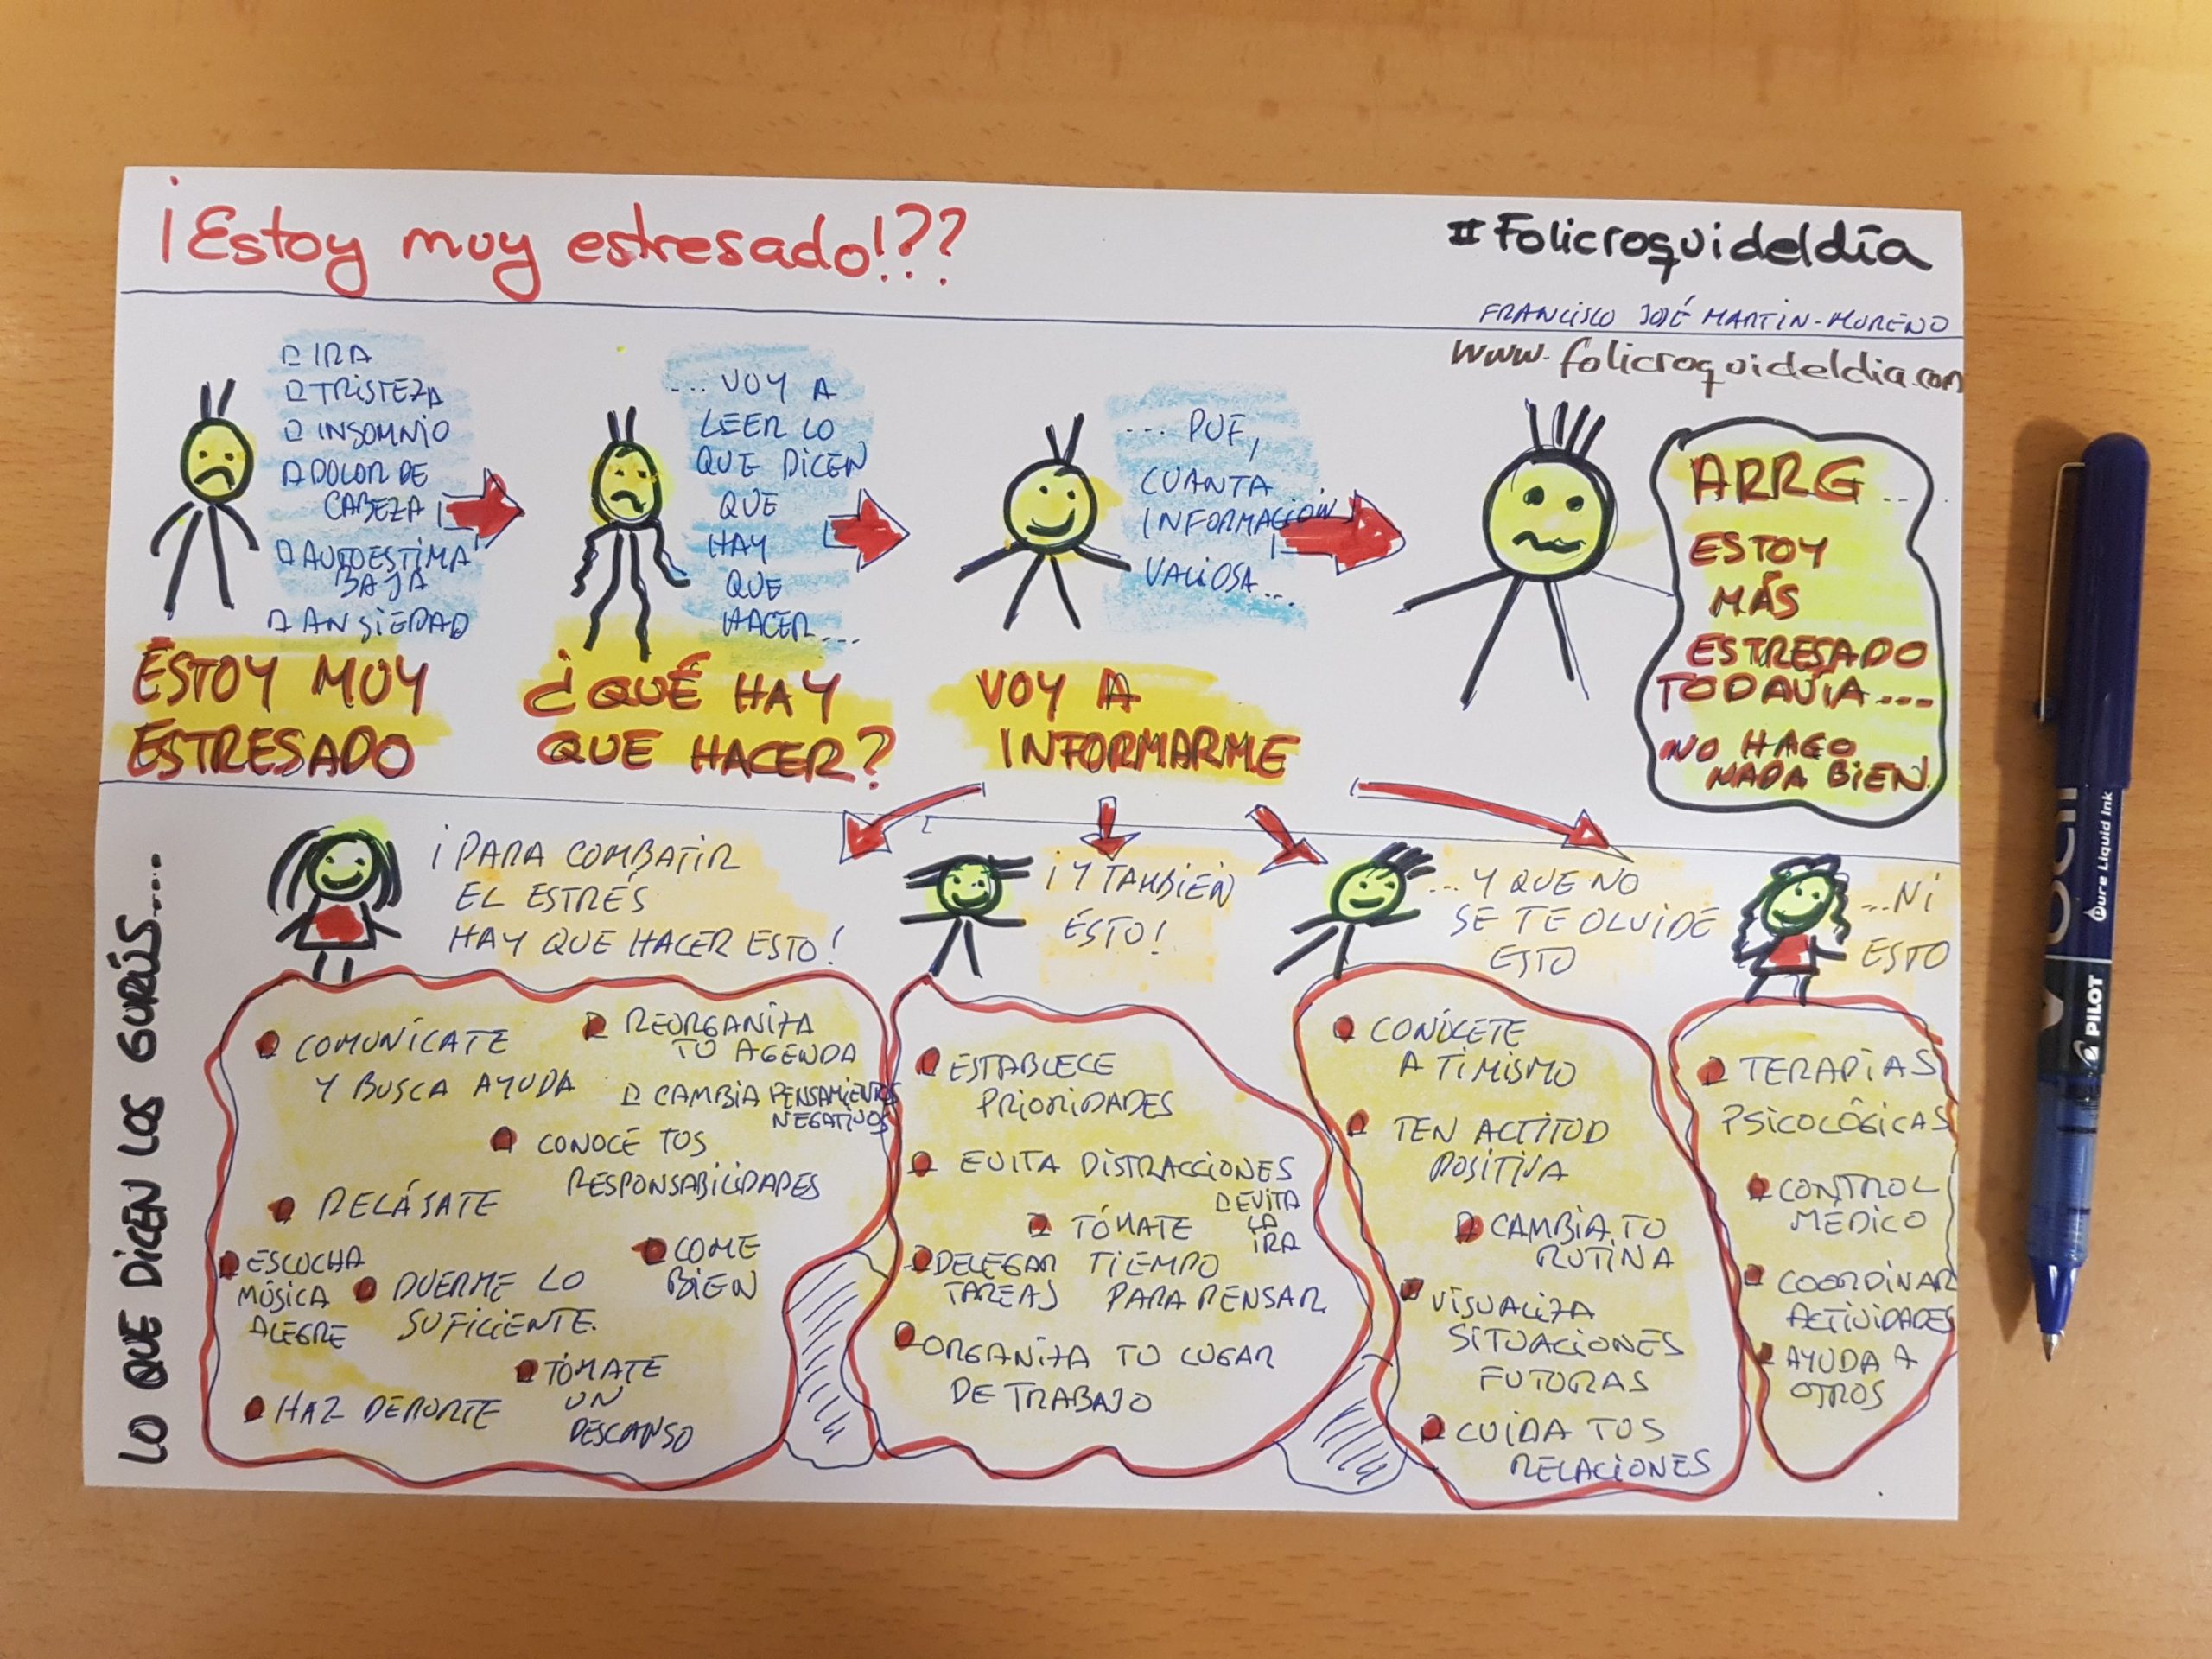 ¡Estoy muy estresado!??
#Folicroquideldía
FRANCISCO JOSÉ MARTIN-MORENO
www.folicroquideldia.com
IRA
TRISTEZA
INSOMNIO
DOLOR DE
CABEZA
AUTOESTIMA
BAJA
ANSIEDAD
ESTOY MUY
ESTRESADO
... VOY A
LEER LO
QUE DICEN
QUE
HAY
QUE
HACER....
¿QUÉ HAY
QUE HACER?
... PUF,
CUANTA
INFORMACIÓN
VALIOSA...
VOY A
INFORMARME
ARRG...
ESTOY
MÁS
ESTRESADO
TODAVÍA...
NO HAGO
NADA BIEN.
LO QUE DICEN LOS GURÚS....
¡PARA COMBATIR
EL ESTRÉS
HAY QUE HACER ESTO!
COMUNÍCATE
Y BUSCA AYUDA
REORGANIZA
TU AGENDA
CAMBIA PENSAMIENTOS
NEGATIVOS
CONOCE TUS
RESPONSABILIDADES
RELÁJATE
ESCUCHA
MÚSICA
ALEGRE
DUERME LO
SUFICIENTE.
COME
BIEN
HAZ DEPORTE
TÓMATE
UN
DESCANSO
¡Y TAMBIÉN
ÉSTO!
ESTABLECE
PRIORIDADES
EVITA DISTRACCIONES
EVITA
LA
IRA
TÓMATE
TIEMPO
PARA PENSAR
DELEGAR
TAREAS
ORGANIZA TU LUGAR
DE TRABAJO
...Y QUE NO
SE TE OLVIDE
ESTO
CONÓCETE
A TI MISMO
TEN ACTITUD
POSITIVA
CAMBIA TU
RUTINA
VISUALIZA
SITUACIONES
FUTURAS
CUIDA TUS
RELACIONES
...NI
ESTO
TERAPIAS
PSICOLÓGICAS
CONTROL
MÉDICO
COORDINAR
ACTIVIDADES
AYUDA A
OTROS
PILOT
Pure Liquid Ink